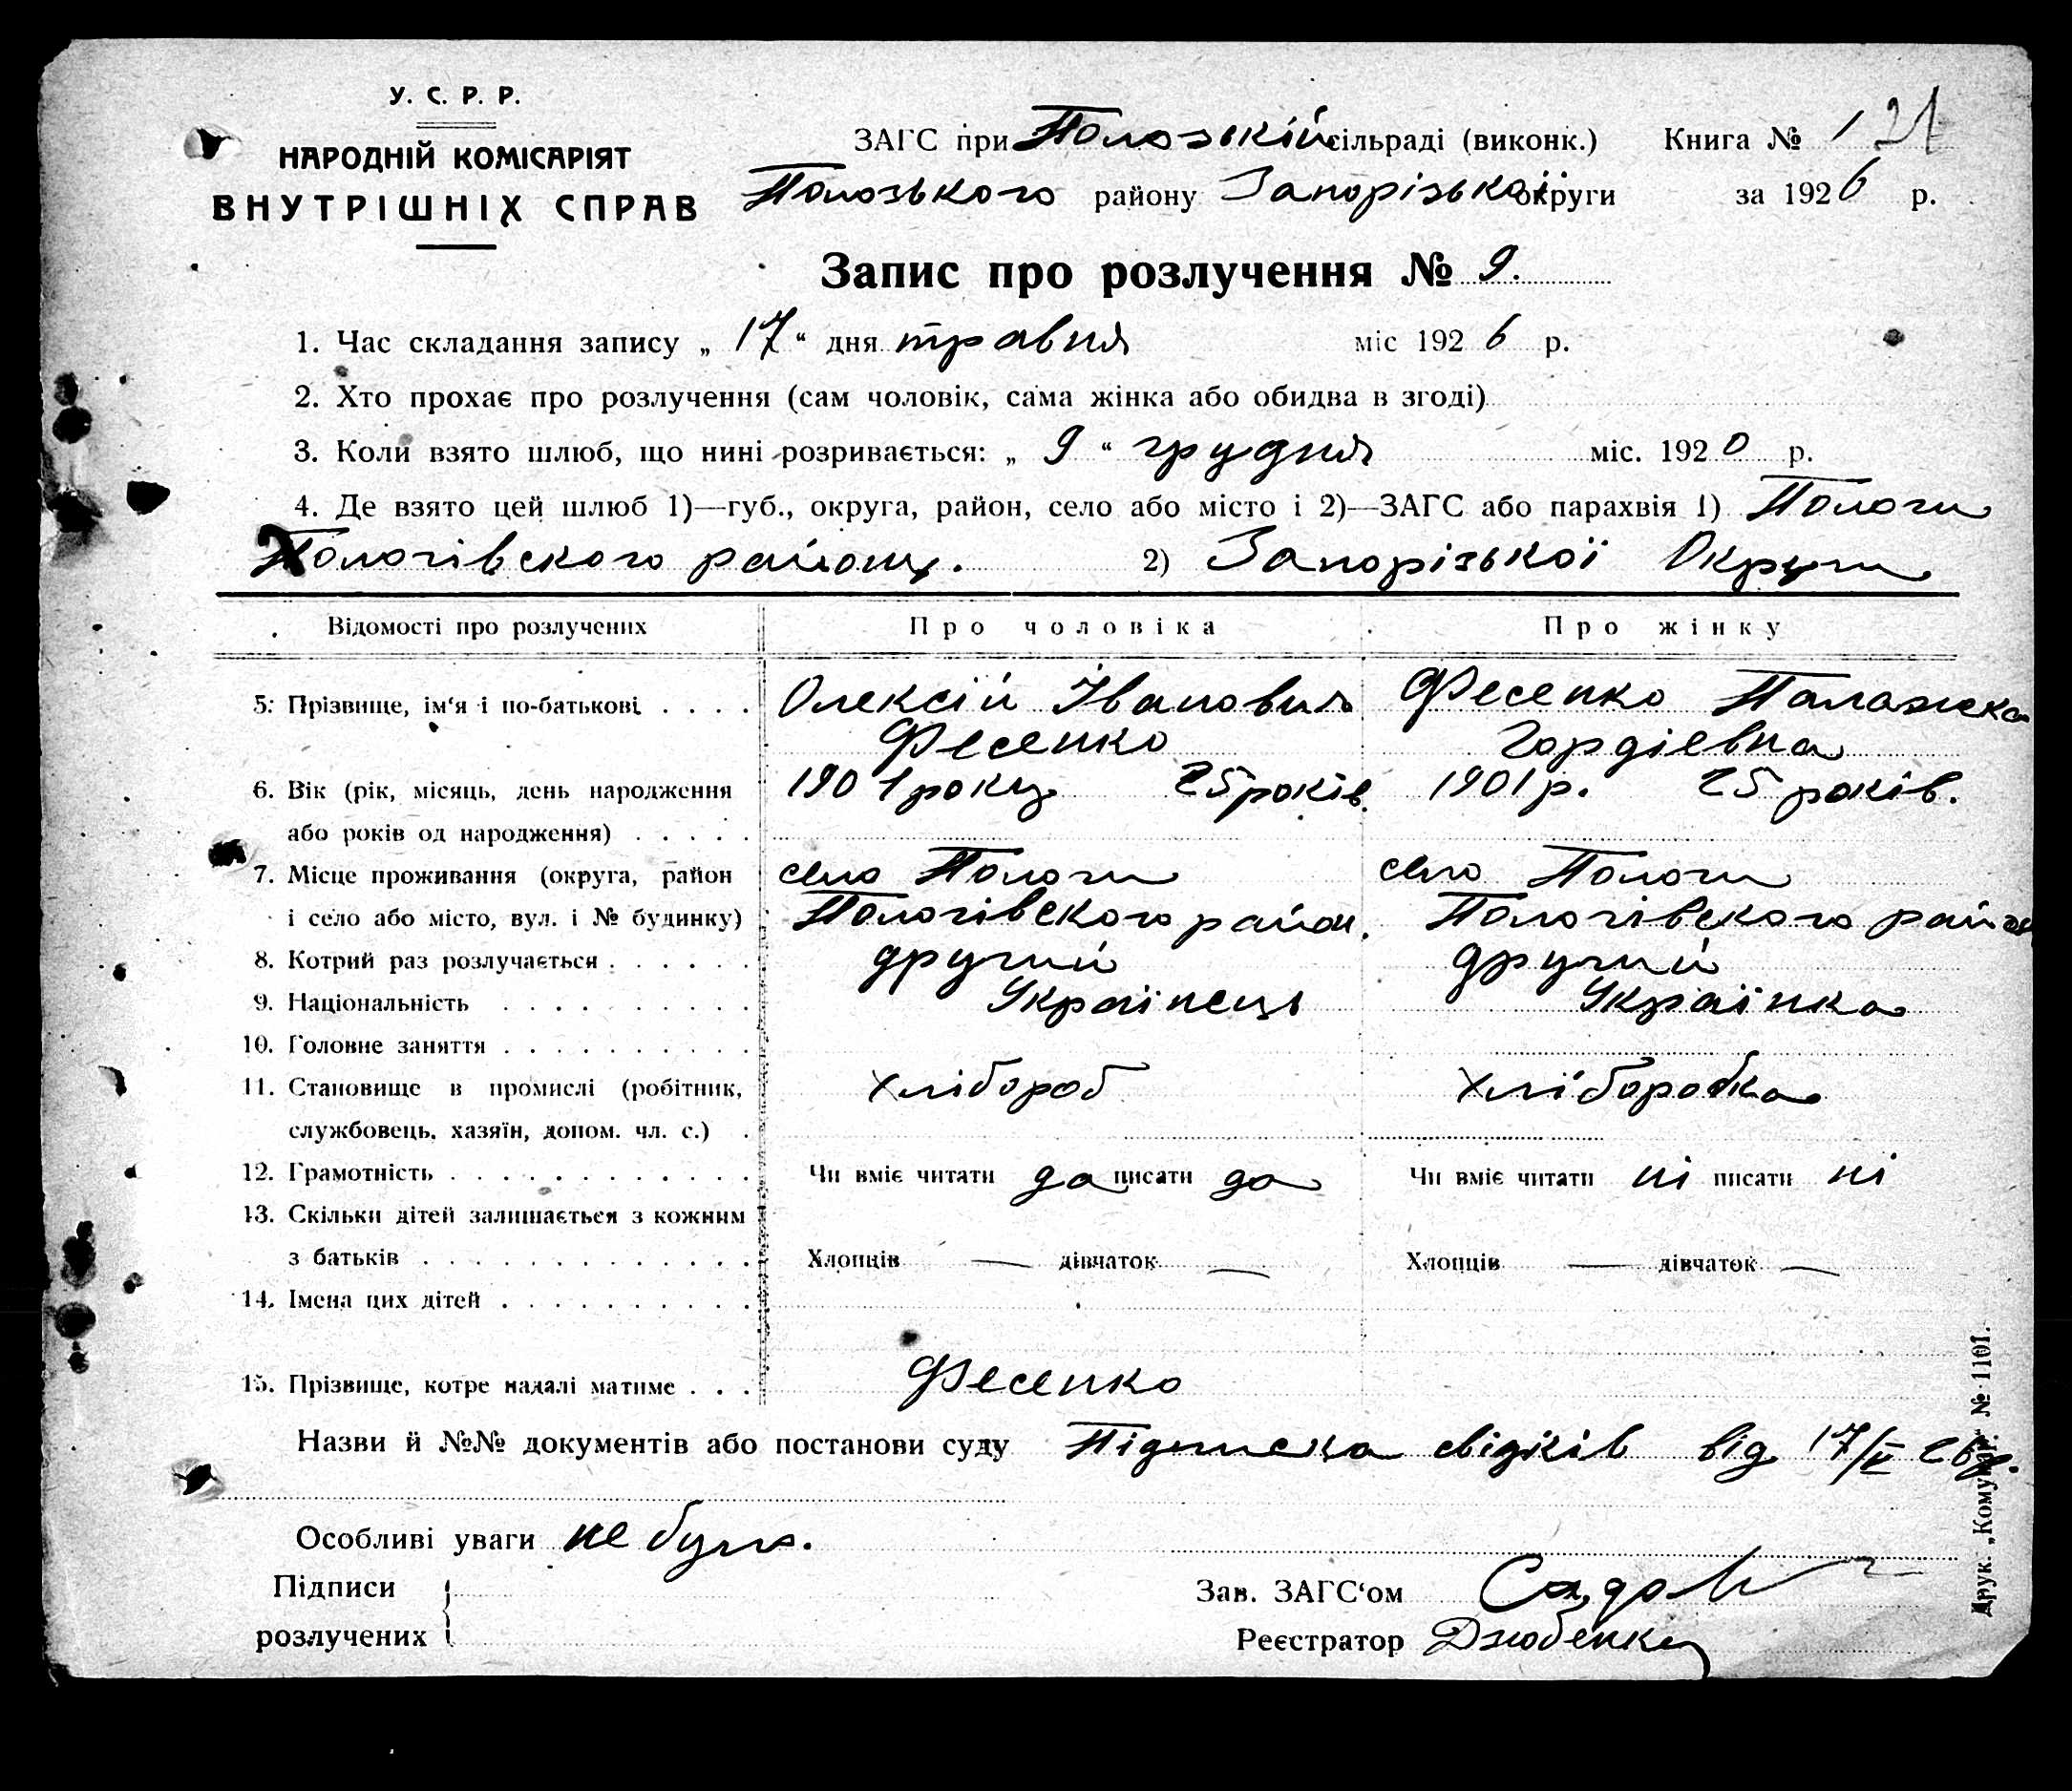 У. С. Р. Р.
НАРОДНІЙ КОМІСАРІЯТ
ВНУТРІШНІХ СПРАВ
ЗАГС при Полозькій сільраді (виконк.) Книга № 1 21
Полозького району Запорізької округи за 1926 р.
Запис про розлучення № 9.
1. Час складання запису „ 17 “ дня травня міс 1926 р.
2. Хто прохає про розлучення (сам чоловік, сама жінка або обидва в згоді)
3. Коли взято шлюб, що нині розривається: „ 9 “ грудня міс. 1920 р.
4. Де взято цей шлюб 1)—губ., округа, район, село або місто і 2)—ЗАГС або парахвія 1) Пологи
Пологівского району. 2) Запорізької Округи
Відомості про розлучених Про чоловіка Про жінку
5. Прізвище, ім‘я і по-батькові . . . . Олексій Іванович Фесенко Палажка
Фесенко Гордіевна
6. Вік (рік, місяць, день народження 1901 року 25 років. 1901 р. 25 років.
або років од народження) . . . . .
7. Місце проживання (округа, район село Пологи село Пологи
і село або місто, вул. і № будинку) Пологівского район. Пологівского район
8. Котрий раз розлучається . . . . . . другий другий
9. Національність . . . . . . . . . . Українець Українка
10. Головне заняття . . . . . . . . . .
11. Становище в промислі (робітник, хлібороб хліборобка
службовець, хазяїн, допом. чл. с.) .
12. Грамотність . . . . . . . . . . . . Чи вміє читати да писати да Чи вміє читати ні писати ні
13. Скільки дітей залишається з кожним
з батьків . . . . . . . . . . . . . Хлопців — дівчаток — Хлопців — дівчаток —
14. Імена цих дітей . . . . . . . . . .
15. Прізвище, котре надалі матиме . . . Фесенко
Назви й №№ документів або постанови суду Підписка свідків від 17/V 26 р.
Особливі уваги не було.
Підписи Зав. ЗАГС‘ом
розлучених Реєстратор Дзюбенко
Друк. „Комунар“ № 1101.